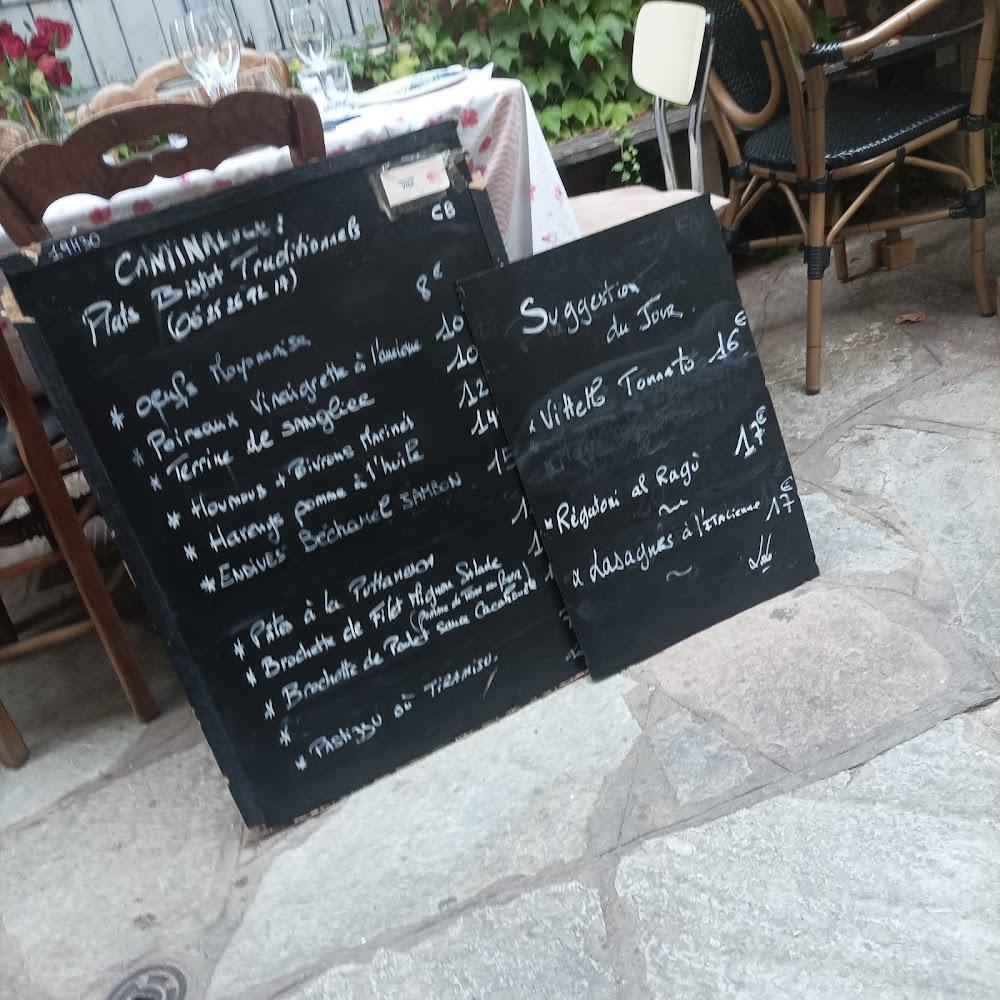 19H30
CB
Plats Bistot Traditionnels
8€
* oeufs Mayonnaise
* Poireaux Vinaigrette à l'ancienne 10
* Terrine de sanglier 10
* Houmous + Poivrons Marinés 12
* Harengs pomme à l'huile 14
* ENDIVES Béchamel JAMBON 15
* Pâtes à la Puttanesca
* Brochette de Filet Mignon Salade
* Brochette de Poulet Sauce Cacahuète
*
* PASTIZZU où TIRAMISU.
Suggestion
du JOUR.
x Vittello Tonnato 16€
* Rigatoni al Ragù 17€
~
x Lasagnes à l'ITALIENNE 17€
~